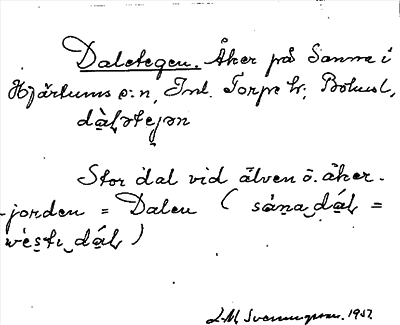 Daletegen. Åker på Sanne i
Hjärtums s:n, Inl. Torpe hd; Bohusl,
dàḷətejən
Stor dal vid älven ö. åker-
-jorden = Dalen ( sána_dáḷ =
vèstı_dáḷ )
L.M. Svenungsson. 1917.